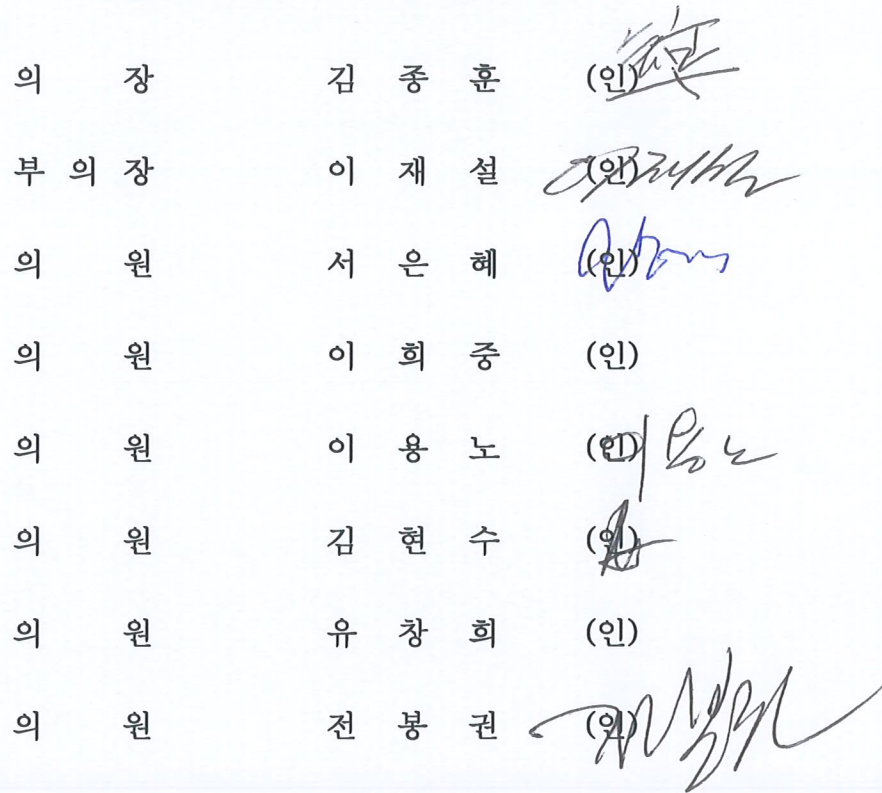 의 장 김 종 훈 (인)
부 의 장 이 재 설 (인) 이재설
의 원 서 은 혜 (인)
의 원 이 희 중 (인)
의 원 이 용 노 (인) 이용노
의 원 김 현 수 (인)
의 원 유 창 희 (인)
의 원 전 봉 권 (인) 전봉권